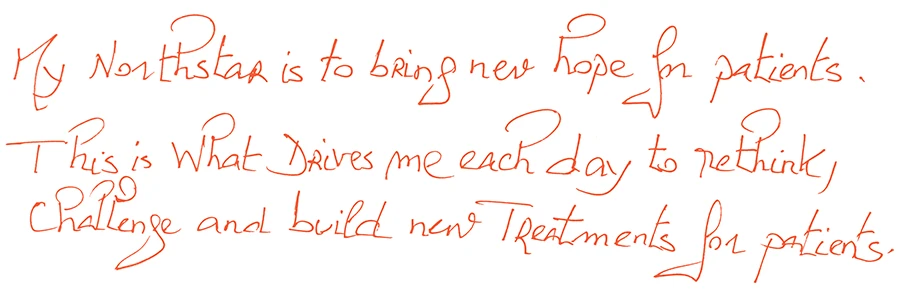 My Northstar is to bring new hope for patients.
This is what Drives me each day to rethink,
challenge and build new Treatments for patients.